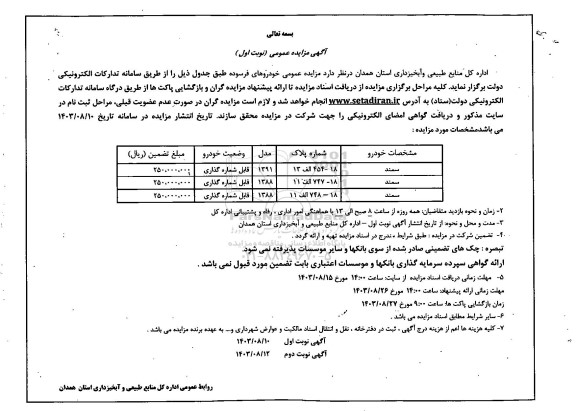 بسمه تعالی
آگهی مزایده عمومی (نوبت اول)
اداره کل منابع طبیعی وآبخیزداری استان همدان درنظر دارد مزایده عمومی خودروهای فرسوده طبق جدول ذیل را از طریق سامانه تدارکات الکترونیکی
دولت برگزار نماید. کلیه مراحل برگزاری مزایده از دریافت اسناد مزایده تا ارائه پیشنهاد مزایده گران و بازگشایی پاکت ها از طریق درگاه سامانه تدارکات
الکترونیکی دولت(ستاد) به آدرس www.setadiran.ir انجام خواهد شد و لازم است مزایده گران در صورت عدم عضویت قبلی، مراحل ثبت نام در
سایت مذکور و دریافت گواهی امضای الکترونیکی را جهت شرکت در مزایده محقق سازند. تاریخ انتشار مزایده در سامانه تاریخ ۱۴۰۳/۰۸/۱۰
می باشد.مشخصات مورد مزایده :
مشخصات خودرو شماره پلاک مدل وضعیت خودرو مبلغ تضمین (ریال)
سمند ۱۸ -۴۵۴ الف ۱۳ ۱۳۹۱ قابل شماره گذاری ۲۵۰,۰۰۰,۰۰۰
سمند ۱۸- ۷۴۷ الف ۱۱ ۱۳۸۸ قابل شماره گذاری ۲۵۰,۰۰۰,۰۰۰
سمند ۱۸ – ۷۴۸ الف ۱۱ ۱۳۸۸ قابل شماره گذاری ۲۵۰,۰۰۰,۰۰۰
۲- زمان و نحوه بازدید متقاضیان: همه روزه از ساعت ۸ صبح الی ۱۳ با هماهنگی امور اداری ، رفاه و پشتیبانی اداره کل
۳- مدت و محل و نحوه: از تاریخ انتشار آگهی نوبت اول – اداره کل منابع طبیعی و آبخیزداری استان همدان
۴- تضمین شرکت در مزایده : طبق شرایط مندرج در اسناد مزایده تهیه و ارائه گردد .
تبصره : چک های تضمینی صادر شده از سوی بانکها و سایر موسسات پذیرفته نمی شود.
ارائه گواهی سپرده سرمایه گذاری بانکها و موسسات اعتباری بابت تضمین مورد قبول نمی باشد .
۵- مهلت زمانی دریافت اسناد مزایده از سایت: ساعت ۱۴:۰۰ مورخ ۱۴۰۳/۰۸/۱۵
مهلت زمانی ارائه پیشنهاد: ساعت ۱۴:۰۰ مورخ ۱۴۰۳/۰۸/۲۶
زمان بازگشایی پاکت ها: ساعت ۹:۰۰ مورخ ۱۴۰۳/۰۸/۲۷
۶- سایر شرایط مطابق اسناد مزایده می باشد .
۷- کلیه هزینه ها اعم از هزینه درج آگهی ، ثبت در دفترخانه ، نقل و انتقال اسناد مالکیت و عوارض شهرداری و... به عهده برنده مزایده می باشد .
آگهی نوبت اول ۱۴۰۳/۰۸/۱۰
آگهی نوبت دوم ۱۴۰۳/۰۸/۱۲
روابط عمومی اداره کل منابع طبیعی و آبخیزداری استان همدان